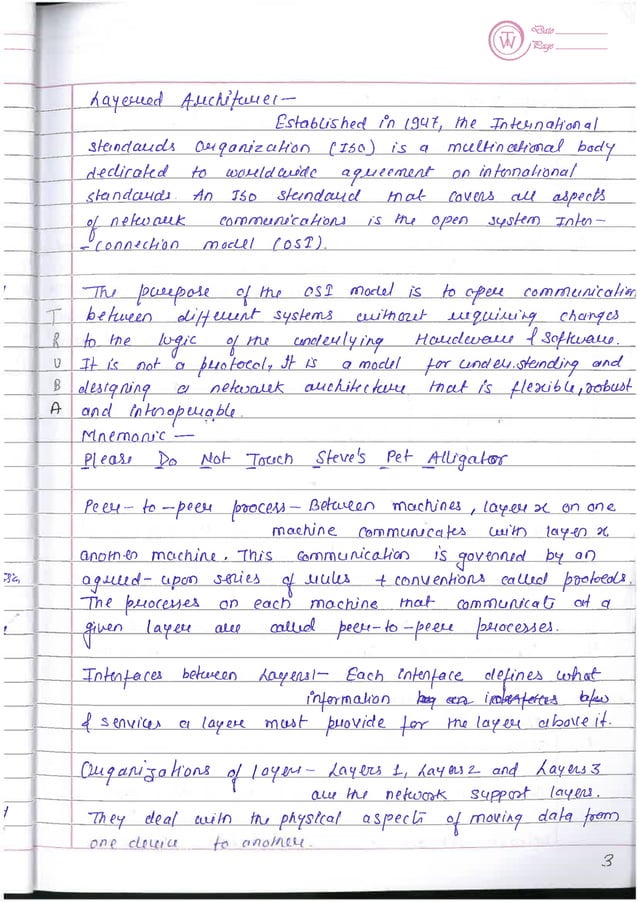 TW
Date
Page
Layered Architure:-
Established in 1947, the International
standards Organization (ISO) is a multinational body
dedicated to worldwide agreement on international
standards. An ISO standard that covers all aspects
of network communications is the open system Inter-
-connection model (OSI).
The purpose of the OSI model is to open communication
between different systems without requiring changes
to the logic of the underlying Hardware & software.
It is not a protocol, It is a model for understanding and
designing a network architecture that is flexible, robust
and interoperable.
T
R
U
B
A
Mnemonic -
Please Do Not Touch Steve's Pet Alligator
Peer-to-peer process - Between machines, layer x on one
machine communicates with layer x
another machine. This communication is governed by an
agreed-upon series of rules + conventions called protocols.
The processes on each machine that communicate at a
given layer are called peer-to-peer processes.
Interfaces between Layers:- Each interface defines what
information
& services a layer must provide for the layer above it.
Organizations of layer - Layers 1, Layers 2 and Layers 3
are the network support layers.
They deal with the physical aspects of moving data from
one device to another.
3